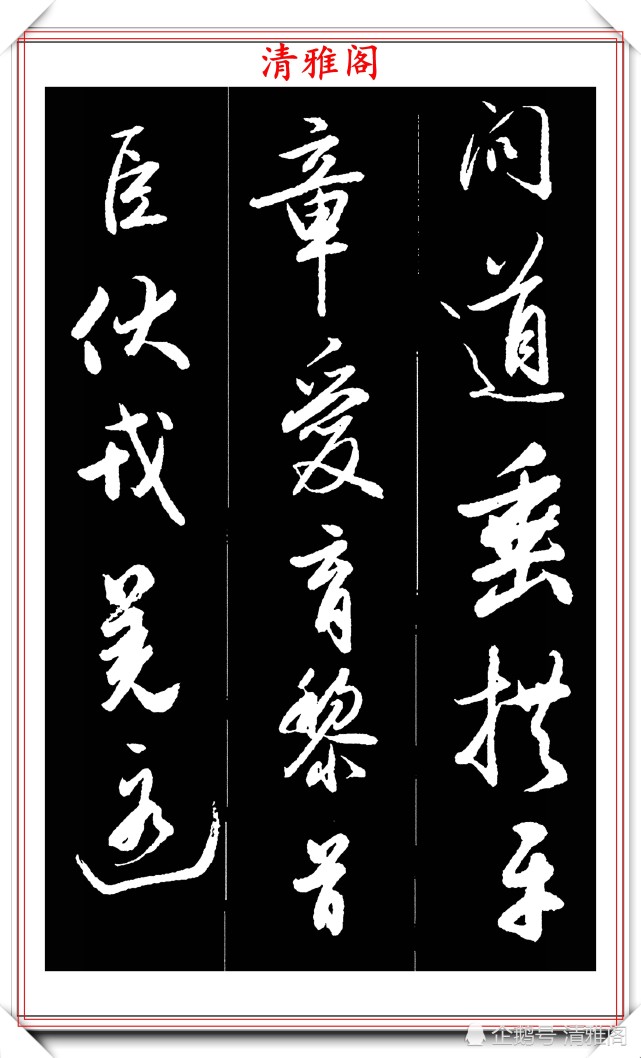 清雅阁
问道垂拱平
章爱育黎首
臣伏戎羌遐
企鹅号 清雅阁